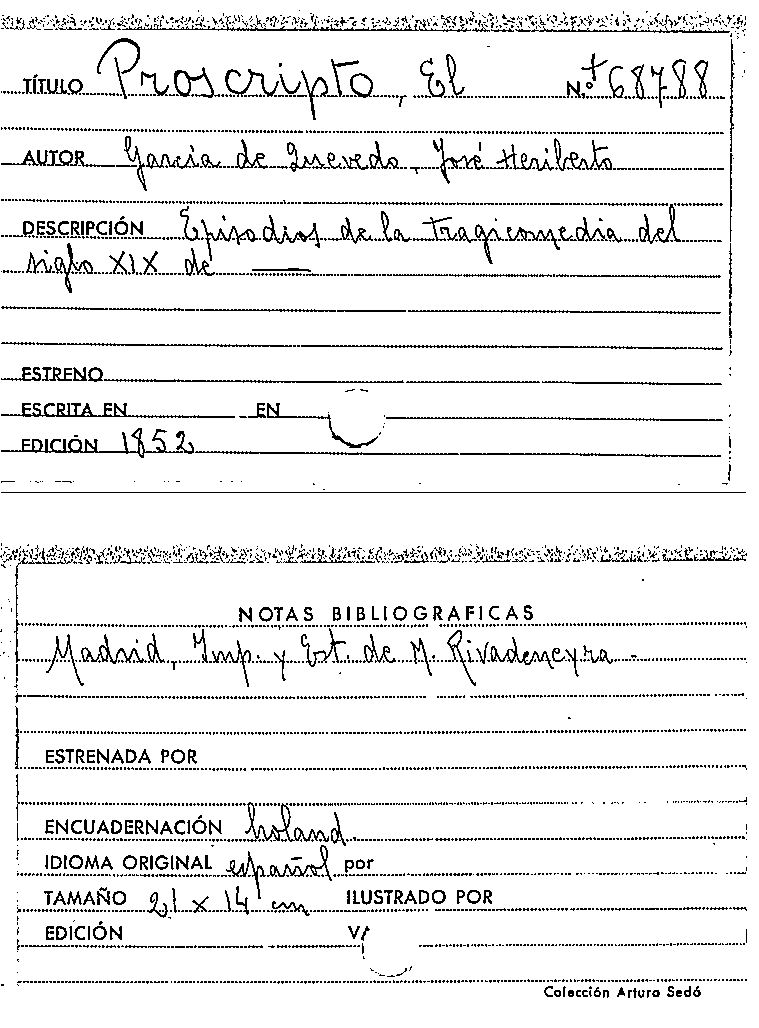 TÍTULO Proscripto, El N.º +68788
AUTOR García de Quevedo, José Heriberto
DESCRIPCIÓN Episodios de la tragicomedia del
siglo XIX de ——
ESTRENO
ESCRITA EN EN
EDICIÓN 1852
NOTAS BIBLIOGRAFICAS
Madrid, Imp. y Est. de M. Rivadeneyra -
ESTRENADA POR
ENCUADERNACIÓN holand.
IDIOMA ORIGINAL español por
TAMAÑO 21 x 14 cm ILUSTRADO POR
EDICIÓN
Colección Arturo Sedó